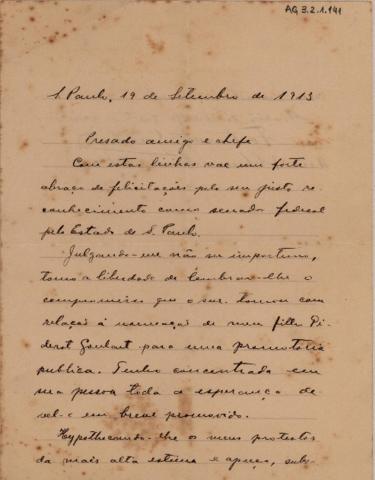 AG 3.2.1.141
S. Paulo, 19 de Setembro de 1913
Presado amigo e chefe
Com estas linhas vae um forte
abraço de felicitações pelo seu justo re-
conhecimento como senador federal
pelo Estado de S. Paulo.
Julgando-me não ser importuno,
tomo a liberdade de lembrar-lhe o
compromisso que o snr. tomou com
relação á nomeação de meu filho Di-
derot Goulart para uma promotoria
publica. Tenho concentrada em
sua pessoa toda a esperança de
vel-o em breve promovido.
Hypothecando-lhe os meus protestos
da mais alta estima e apreço, subs-